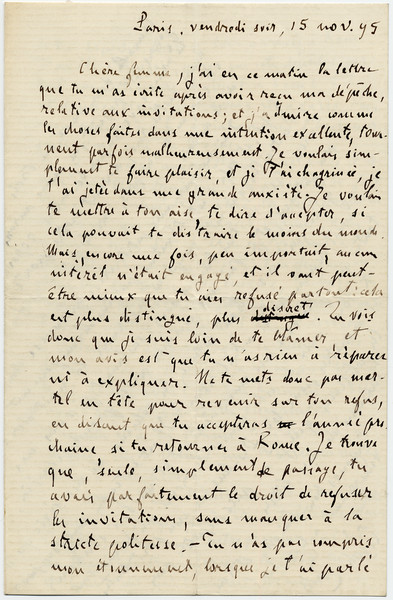 Paris, vendredi soir, 15 nov. 95
Chère femme, j'ai eu ce matin la lettre
que tu m'as écrite après avoir reçu ma dépêche,
relative aux invitations; et j'admire comme
les choses faites dans une intention excellente tour-
nent parfois malheureusement. Je voulais sim-
plement te faire plaisir, et je t'ai chagrinée, je
t'ai jetée dans une grande anxiété. Je voulais
te mettre à ton aise, te dire d'accepter, si
cela pouvait te distraire le moins du monde.
Mais, encore une fois, peu importait, aucun
intérêt n'était engagé, et il vaut peut-
être mieux que tu aies refusé partout: cela
est plus distingué, plus discret. Tu vois
donc que je suis loin de te blâmer, et
mon avis est que tu n'as rien à réparer
ni à expliquer. Ne te mets donc pas mar-
tel en tête pour revenir sur ton refus,
en disant que tu accepteras l'année pro
chaine, si tu retournes à Rome. Je trouve
que, seule, simplement de passage, tu
avais parfaitement le droit de refuser
les invitations, sans manquer à la
stricte politesse. — Tu n'as pas compris
mon étonnement, lorsque je t'ai parlé